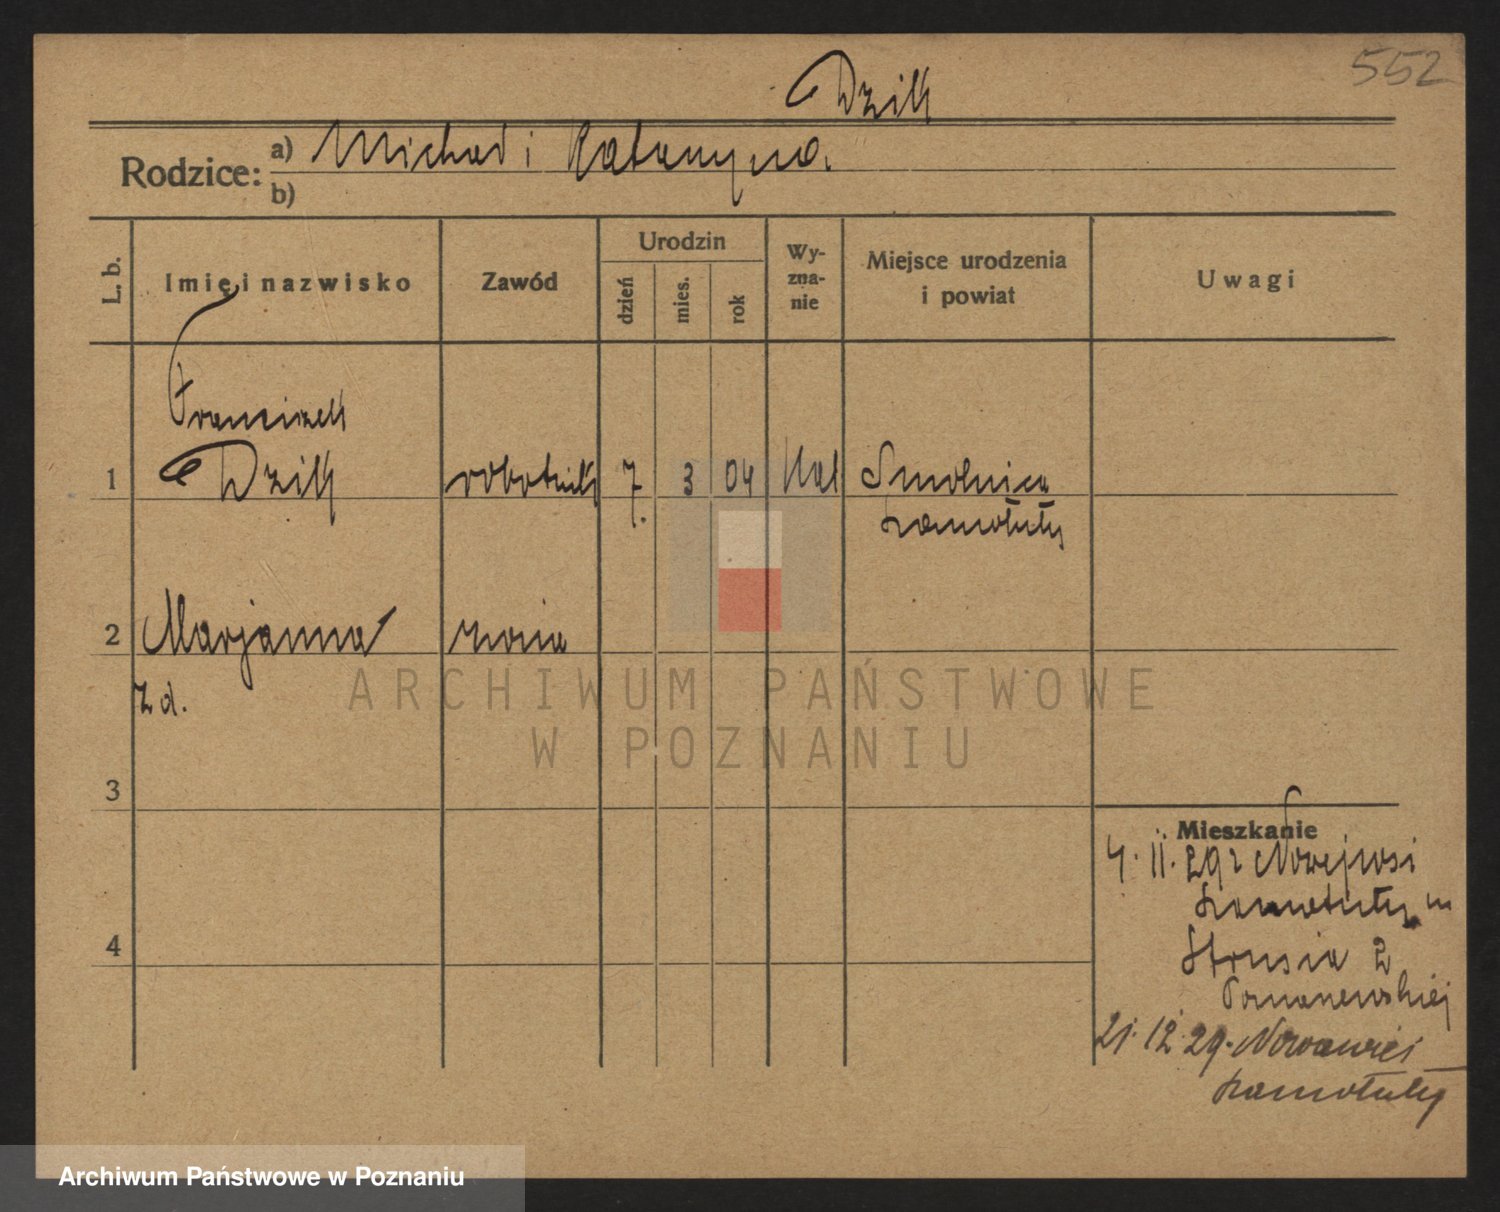 552
Dzik
Rodzice:
a) Michał i Katarzyna.
b)
L. b.
Imię i nazwisko
Zawód
Urodzin
dzień
mies.
rok
Wy-
zna-
nie
Miejsce urodzenia
i powiat
Uwagi
Franciszek
1 Dzik robotnik 7. 3 04 Kat Smolnica
Szamotuły
2 Marjanna żona
z d.
3
4
Mieszkanie
4. II. 29 z Nowejwsi
Szamotuły
Strusia 2
21. 12. 29. Nowawieś
Szamotuły
ARCHIWUM PAŃSTWOWE
W POZNANIU
Archiwum Państwowe w Poznaniu